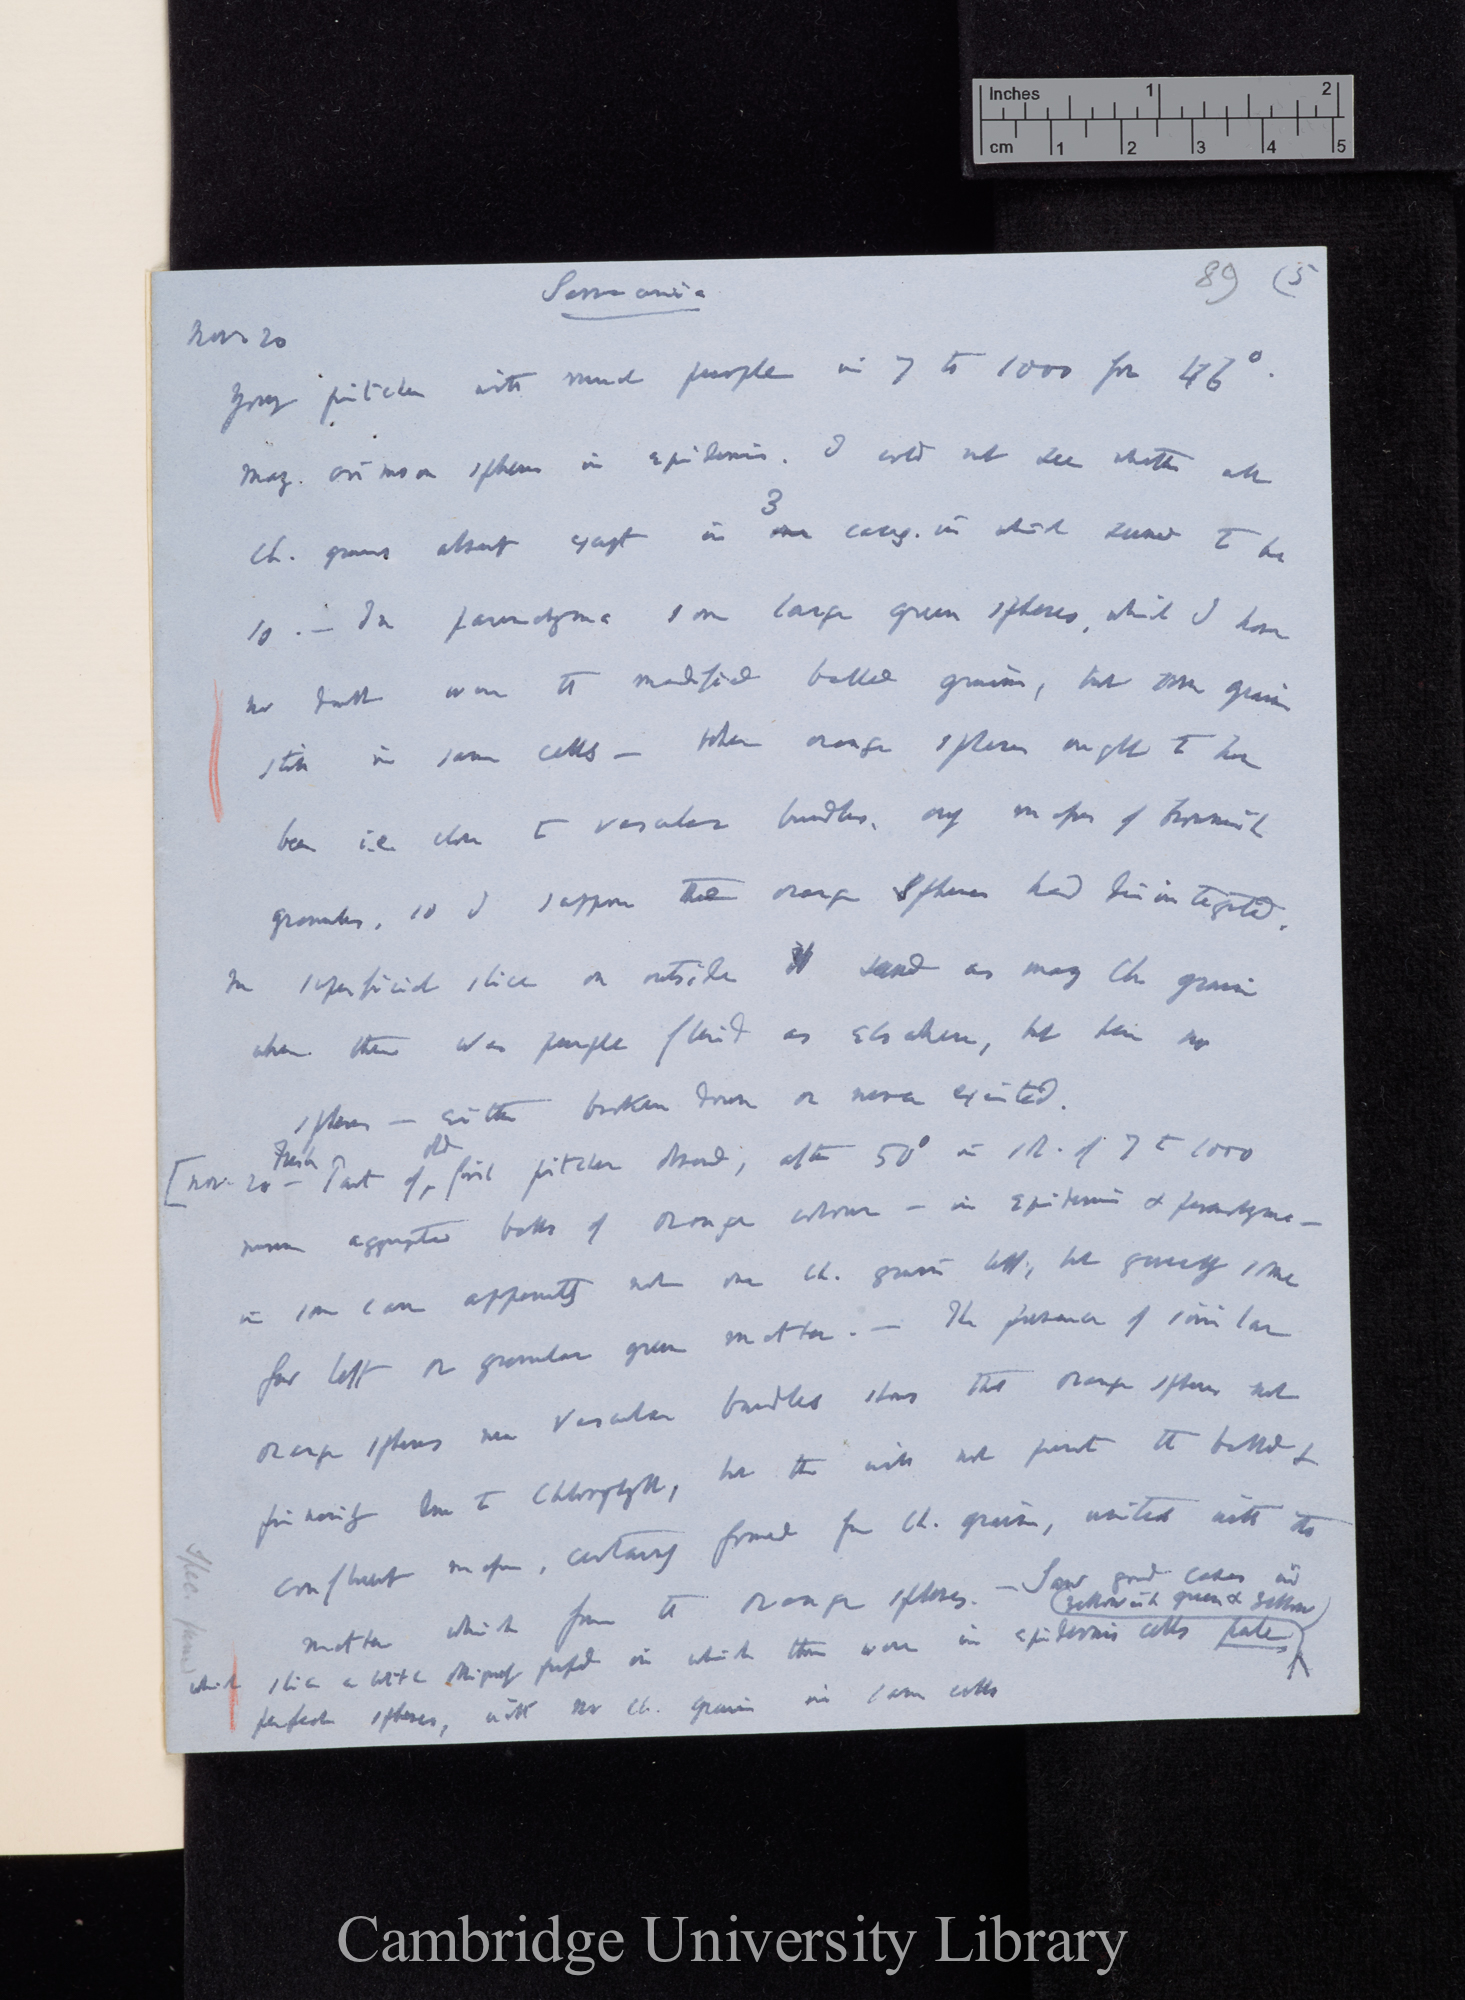 Inches 1 2
cm 1 2 3 4 5
89 (5
Sarracenia
Nov 20
Young pitcher with much purple in 7 to 1000 for 46°.
Many crimson spheres in epidermis. I could not see whether all
Ch. grains absent except in 3 cases in which seemed to be
so. — In parenchyma some large green spheres, which I have
no doubt were the modified balled grains, but some grains
still in same cells — where orange spheres ought to have
been i.e. close to vascular bundles, only masses of brownish
granules, so I suppose these orange spheres had disintegrated.
In superficial slice on outside as many Ch. grains
when there was purple fluid as elsewhere, but here no
spheres — either broken down or never existed.
[Nov. 20 — Fresh Part of old first pitcher, after 50° in sol. of 7 to 1000
aggregated balls of orange colour — in epidermis & parenchyma —
in some cases apparently not one Ch. grain left, but generally some
few left or granular green matter. — The presence of similar
orange spheres near vascular bundles shows that orange spheres not
primarily due to Chlorophyll, but this will not prevent the balled &
confluent masses, certainly formed from Ch. grains, united with the
matter which form the orange spheres. — Saw good cases in
(yellowish green & yellow)
which slice in which there were in epidermis cells pale
perfect spheres, with no Ch. grains in same cells
Cambridge University Library